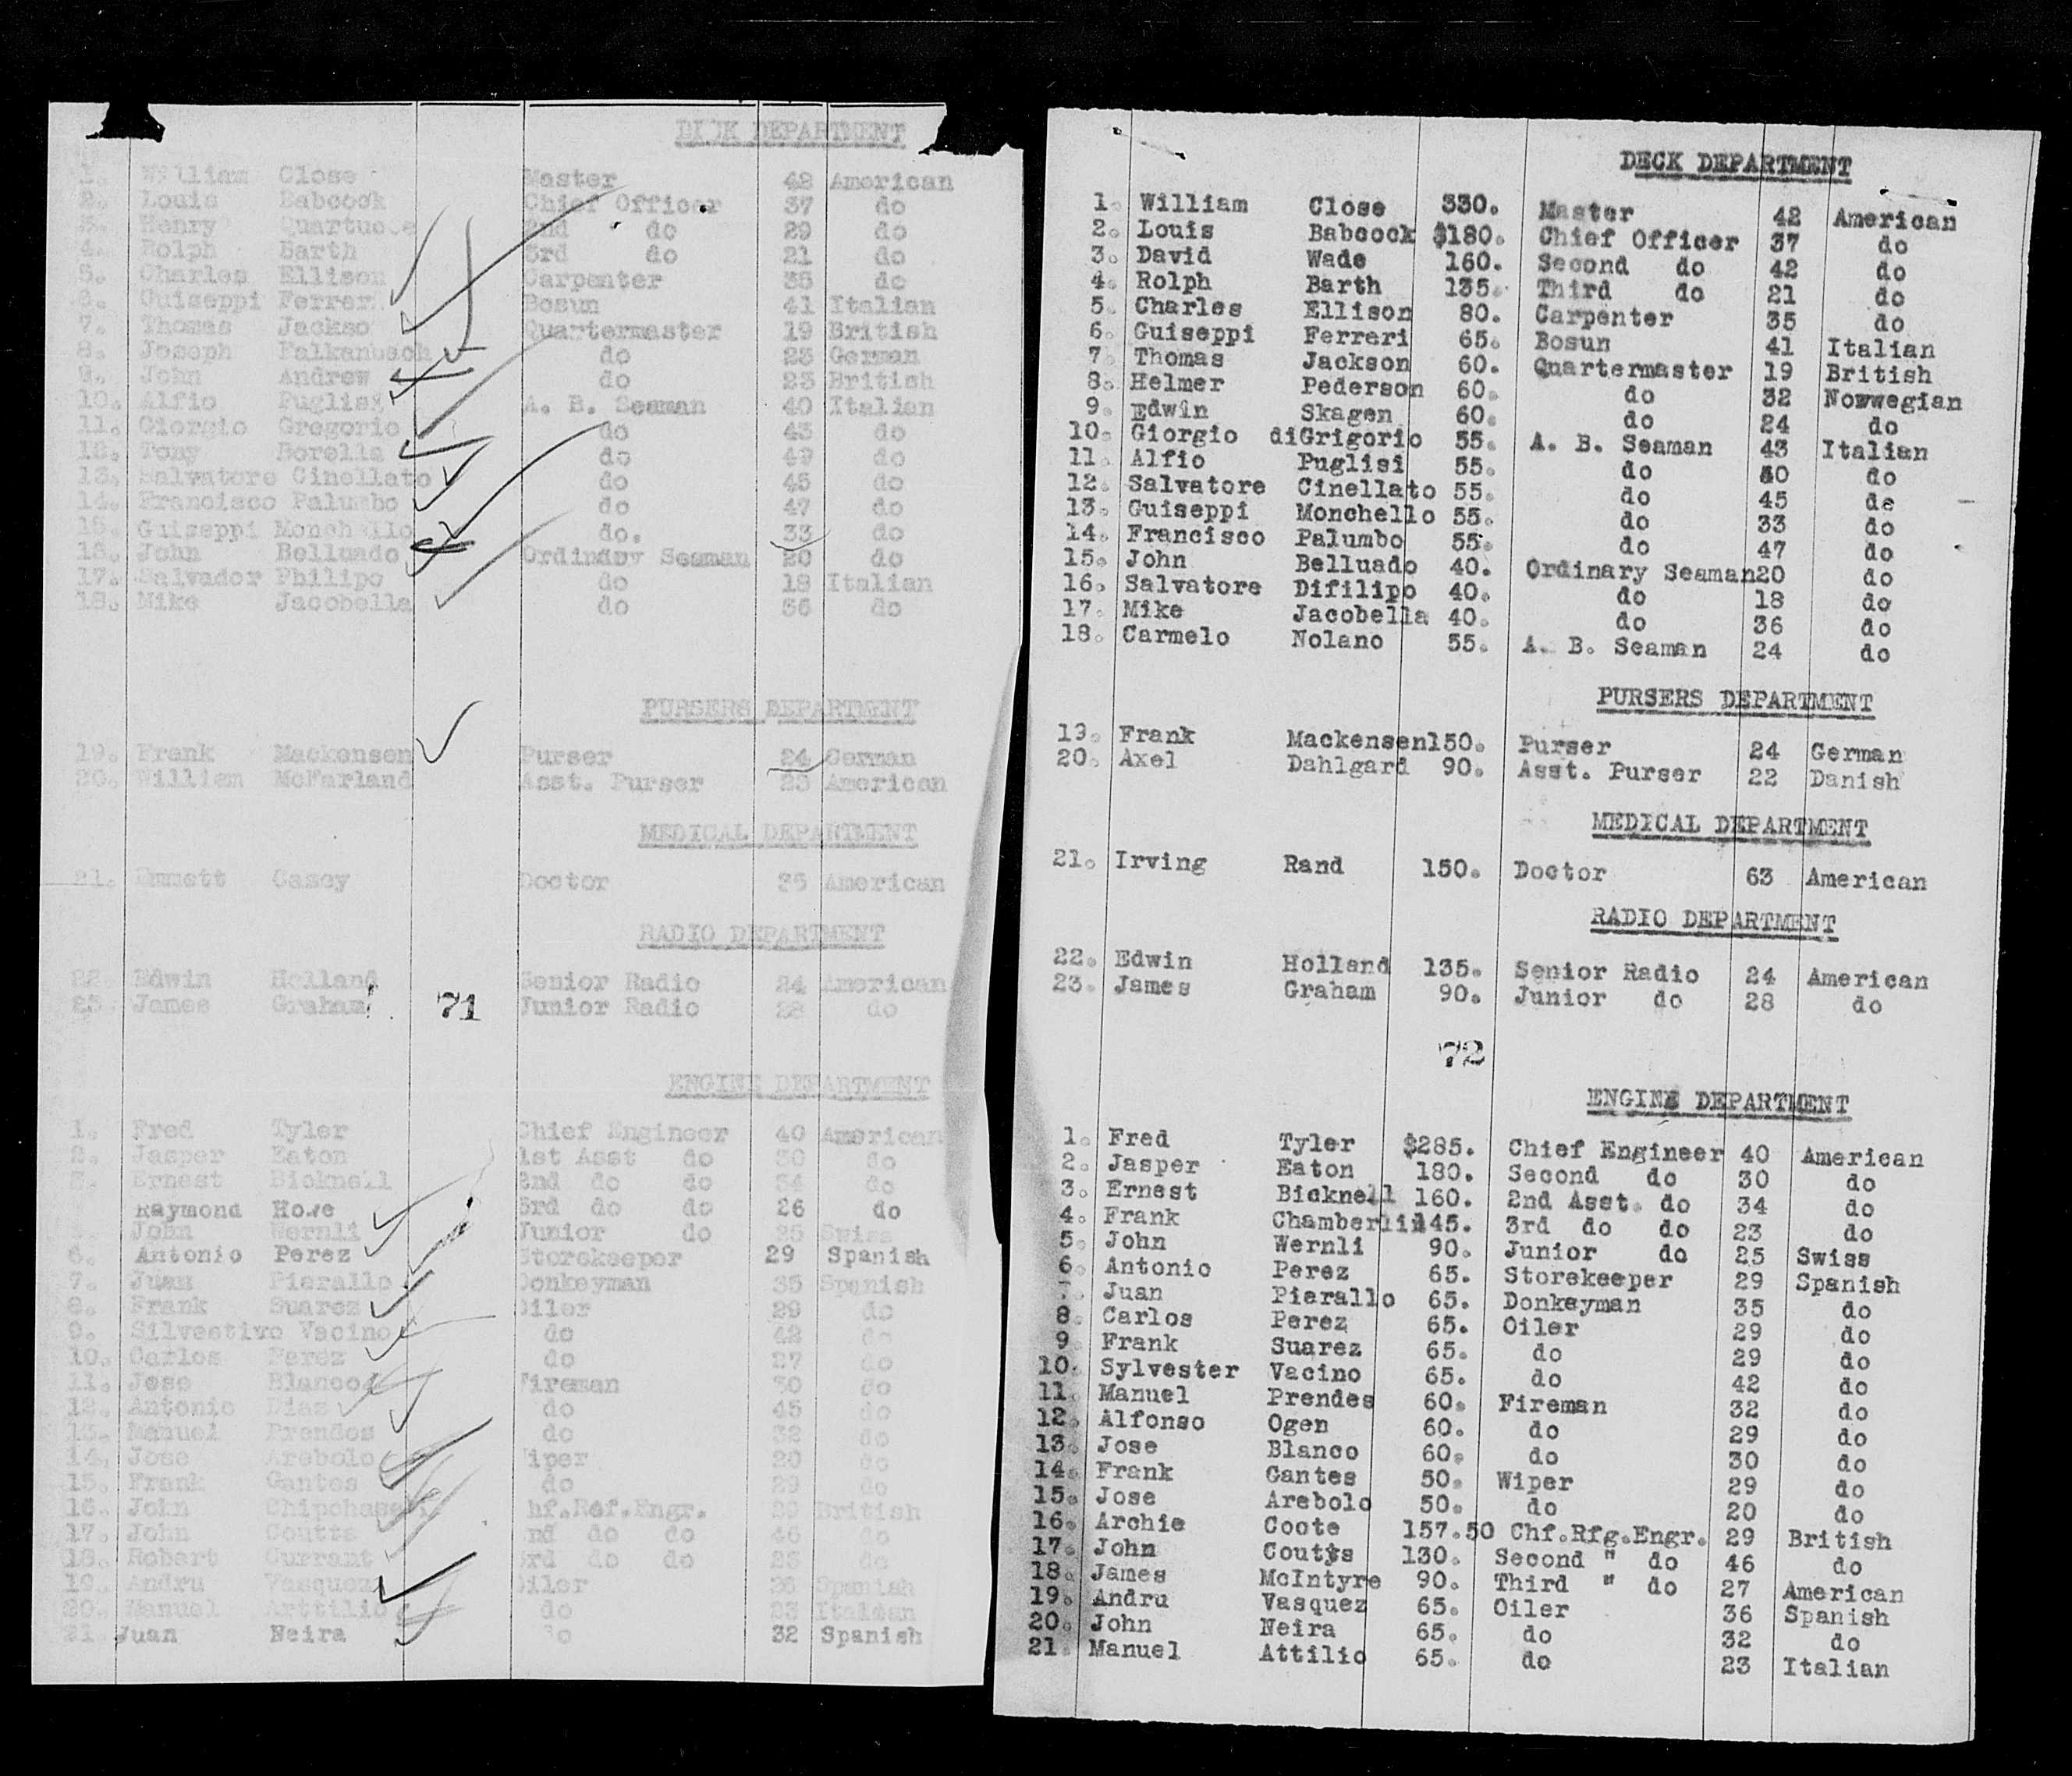 DECK DEPARTMENT
1. William Close Master 42 American
2. Louis Babcock Chief Officer 37 do
3. Henry Quartuoce 2nd do 29 do
4. Rolph Barth 3rd do 21 do
5. Charles Ellison Carpenter 35 do
6. Guiseppi Ferreri Bosun 41 Italian
7. Thomas Jackso Quartermaster 19 British
8. Joseph Falkanbach do 23 German
9. John Andrew do 23 British
10. Alfio Puglisi A. B. Seaman 40 Italian
11. Giorgio Gregorio do 43 do
12. Tony Borella do 49 do
13. Salvatore Cinellato do 45 do
14. Francisco Palumbo do 47 do
15. Guiseppi Monchello do. 33 do
16. John Belluado Ordinary Seaman 20 do
17. Salvador Philipo do 18 Italian
18. Mike Jacobella do 36 do
PURSERS DEPARTMENT
19. Frank Mackensen Purser 24 German
20. William McFarland Asst. Purser 23 American
MEDICAL DEPARTMENT
21. Emmett Casey Doctor 35 American
RADIO DEPARTMENT
22. Edwin Holland Senior Radio 24 American
23. James Graham Junior Radio 28 do
71
ENGINE DEPARTMENT
1. Fred Tyler Chief Engineer 40 American
2. Jasper Eaton 1st Asst do 30 do
3. Ernest Bicknell 2nd do do 34 do
Raymond Howe 3rd do do 26 do
John Wernli Junior do 25 Swiss
6. Antonio Perez Storekeeper 29 Spanish
7. Juan Pierallo Donkeyman 35 Spanish
8. Frank Suarez Oiler 29 do
9. Silvestivo Vacino do 42 do
10. Carlos Perez do 27 do
11. Jose Blanco Fireman 30 do
12. Antonio Dias do 45 do
13. Manuel Prendes do 32 do
14. Jose Arebolo Wiper 20 do
15. Frank Gantes do 29 do
16. John Chipchase Chf.Ref.Engr. 29 British
17. John Coutts 2nd do do 46 do
18. Robert Currant 3rd do do 23 do
19. Andru Vasquez Oiler 36 Spanish
20. Manuel Arttilio do 23 Italian
21. Juan Neira do 32 Spanish
DECK DEPARTMENT
1. William Close 330. Master 42 American
2. Louis Babcock $180. Chief Officer 37 do
3. David Wade 160. Second do 42 do
4. Rolph Barth 135. Third do 21 do
5. Charles Ellison 80. Carpenter 35 do
6. Guiseppi Ferreri 65. Bosun 41 Italian
7. Thomas Jackson 60. Quartermaster 19 British
8. Helmer Pederson 60. do 32 Norwegian
9. Edwin Skagen 60. do 24 do
10. Giorgio diGrigorio 55. A. B. Seaman 43 Italian
11. Alfio Puglisi 55. do 40 do
12. Salvatore Cinellato 55. do 45 do
13. Guiseppi Monchello 55. do 33 do
14. Francisco Palumbo 55. do 47 do
15. John Belluado 40. Ordinary Seaman 20 do
16. Salvatore Difilipo 40. do 18 do
17. Mike Jacobella 40. do 36 do
18. Carmelo Nolano 55. A. B. Seaman 24 do
PURSERS DEPARTMENT
19. Frank Mackensen 150. Purser 24 German
20. Axel Dahlgard 90. Asst. Purser 22 Danish
MEDICAL DEPARTMENT
21. Irving Rand 150. Doctor 63 American
RADIO DEPARTMENT
22. Edwin Holland 135. Senior Radio 24 American
23. James Graham 90. Junior do 28 do
72
ENGINE DEPARTMENT
1. Fred Tyler $285. Chief Engineer 40 American
2. Jasper Eaton 180. Second do 30 do
3. Ernest Bicknell 160. 2nd Asst. do 34 do
4. Frank Chamberlin 145. 3rd do do 23 do
5. John Wernli 90. Junior do 25 Swiss
6. Antonio Perez 65. Storekeeper 29 Spanish
7. Juan Pierallo 65. Donkeyman 35 do
8. Carlos Perez 65. Oiler 29 do
9 Frank Suarez 65. do 29 do
10. Sylvester Vacino 65. do 42 do
11. Manuel Prendes 60. Fireman 32 do
12. Alfonso Ogen 60. do 29 do
13. Jose Blanco 60. do 30 do
14. Frank Gantes 50. Wiper 29 do
15. Jose Arebolo 50. do 20 do
16. Archie Coote 157.50 Chf.Rfg.Engr. 29 British
17. John Coutts 130. Second " do 46 do
18. James McIntyre 90. Third " do 27 American
19. Andru Vasquez 65. Oiler 36 Spanish
20. John Neira 65. do 32 do
21. Manuel Attilio 65. do 23 Italian